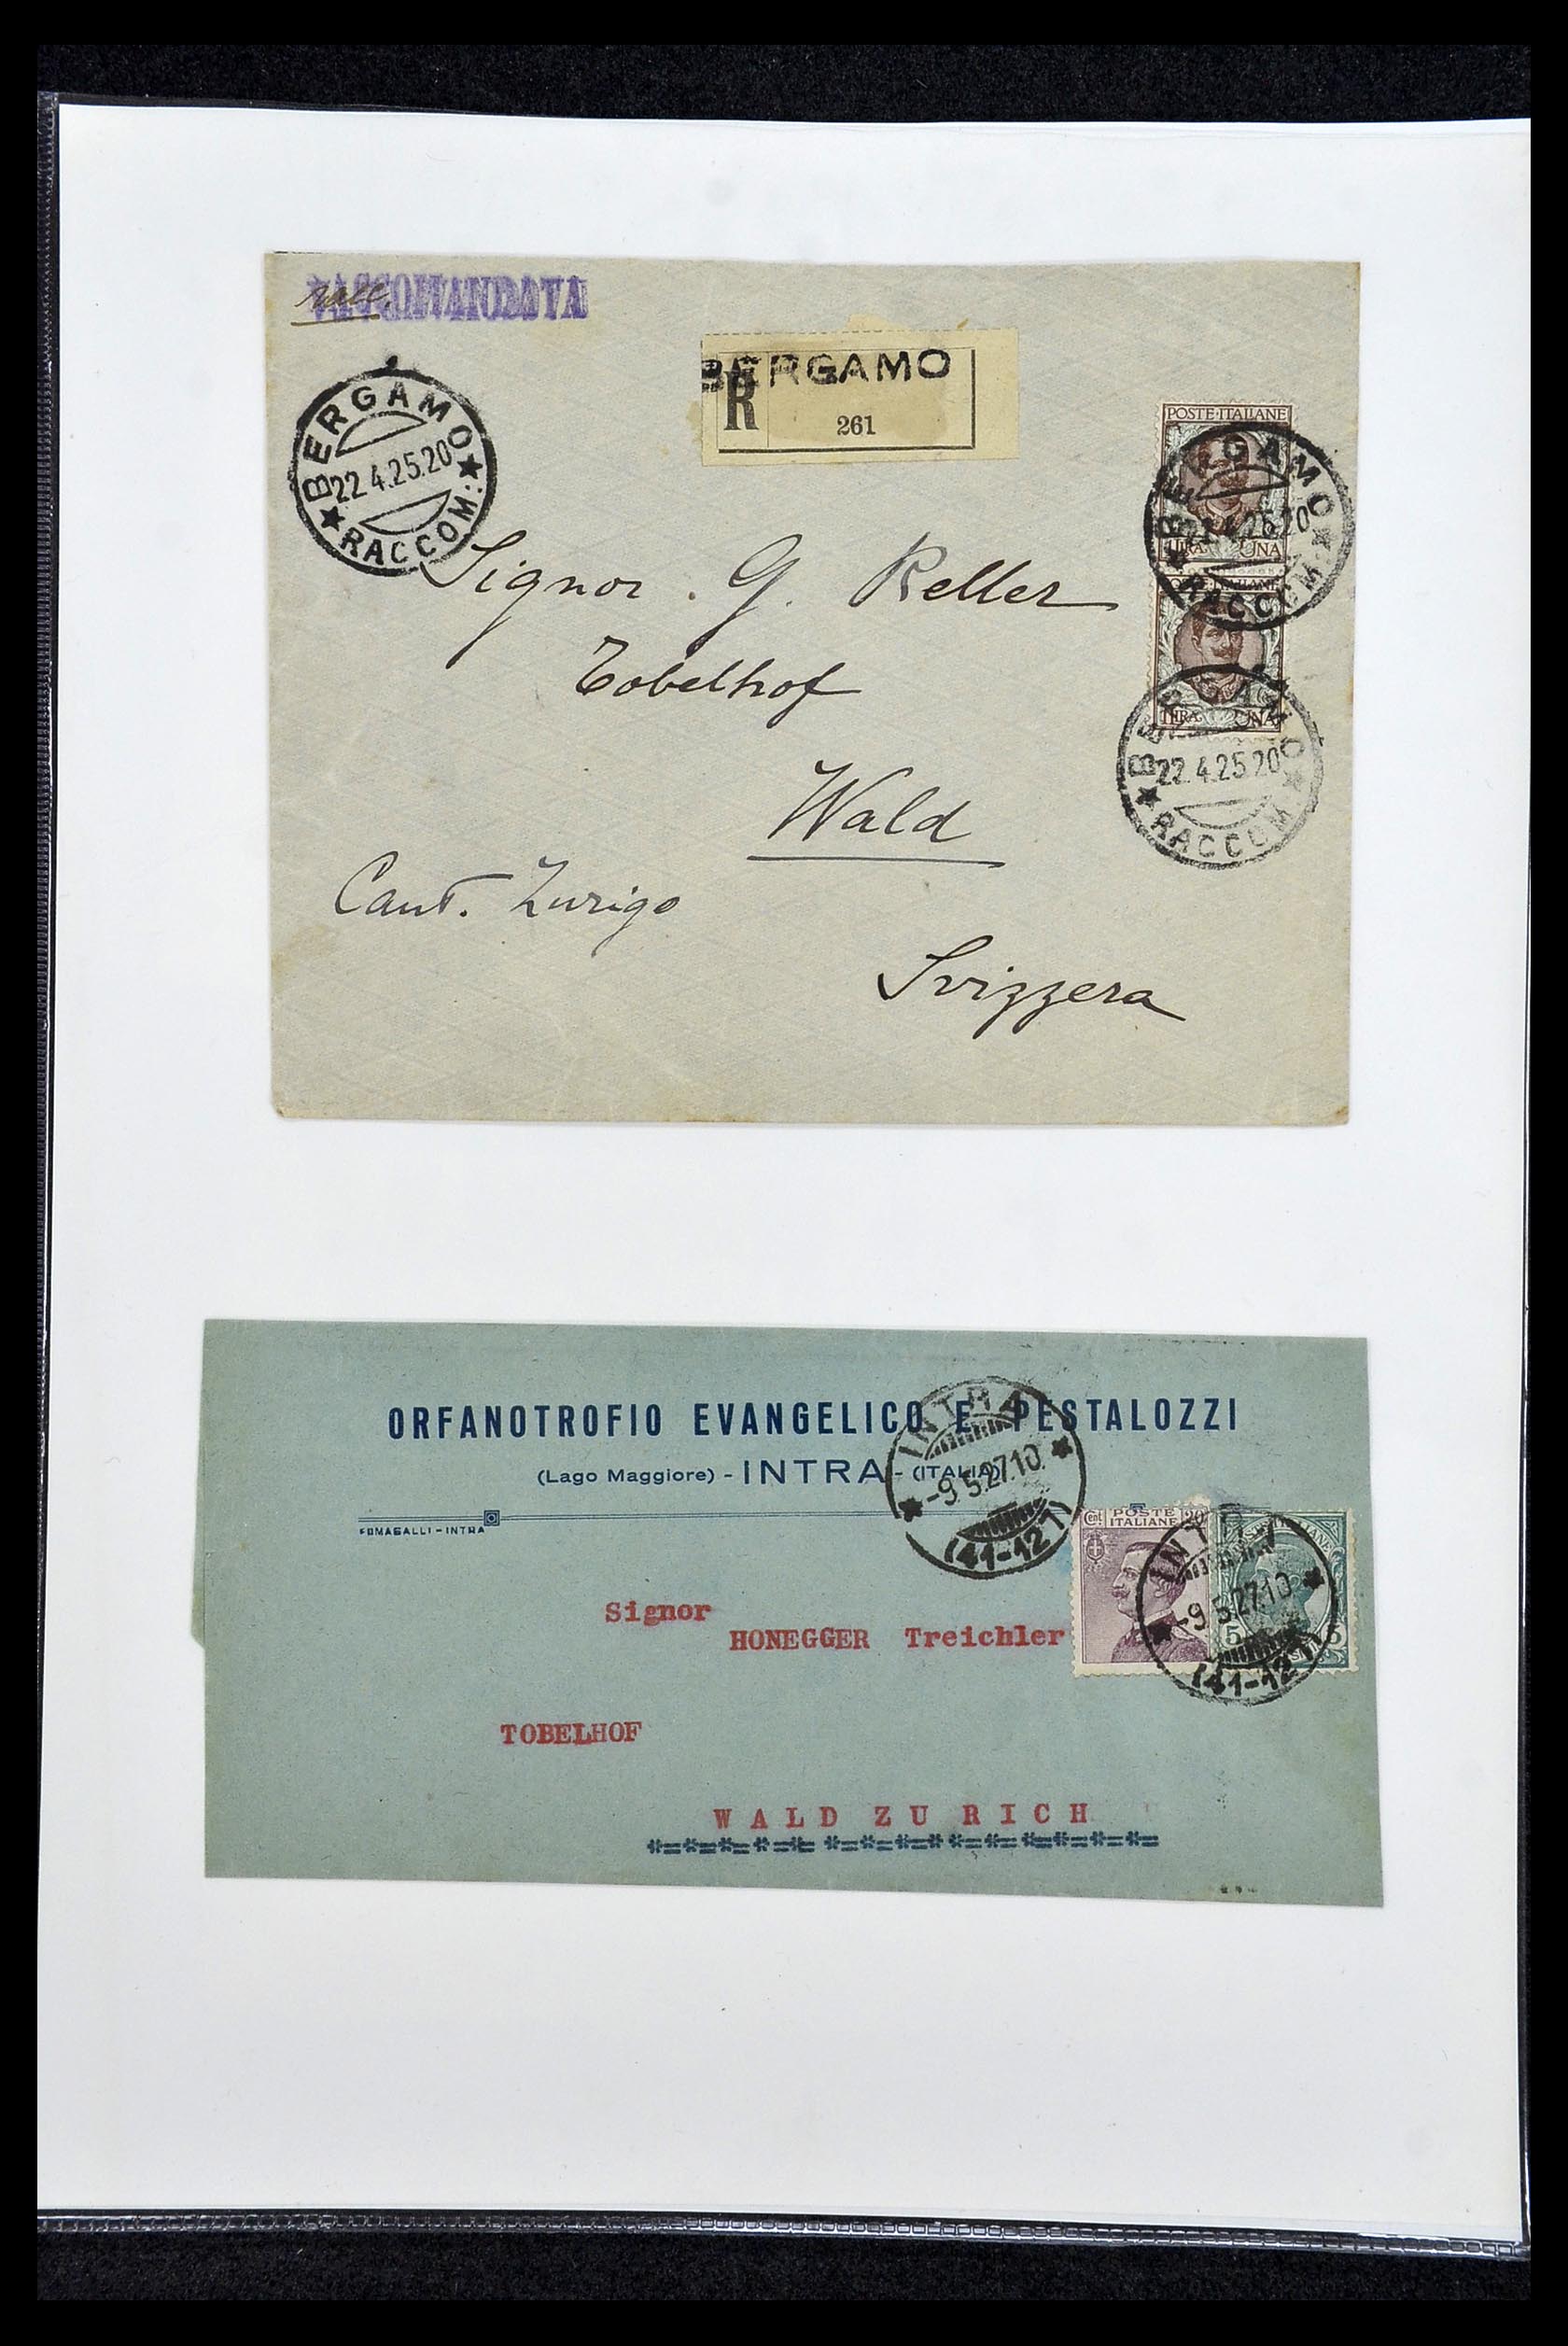 RACCOMANDATA
racc.
BERGAMO
R
261
BERGAMO
22.4.25.20
RACCOM.
POSTE·ITALIANE
LIRA UNA
BERGAMO
22.4.25.20
RACCOM.
POSTE·ITALIANE
LIRA UNA
BERGAMO
22.4.25.20
RACCOM.
Signor G. Keller
Tobelhof
Wald
Cant. Zurigo
Svizzera
ORFANOTROFIO EVANGELICO E PESTALOZZI
(Lago Maggiore) - INTRA - (ITALIA)
FUMAGALLI - INTRA
INTRA
-9.5.27.10
(41-121)
Cent POSTE 20
ITALIANE
5 5
INTRA
-9.5.27.10
(41-121)
Signor
HONEGGER Treichler
TOBELHOF
WALD ZURICH
*=*=*=*=*= *=*=*=* *=*= *=*=*=*=